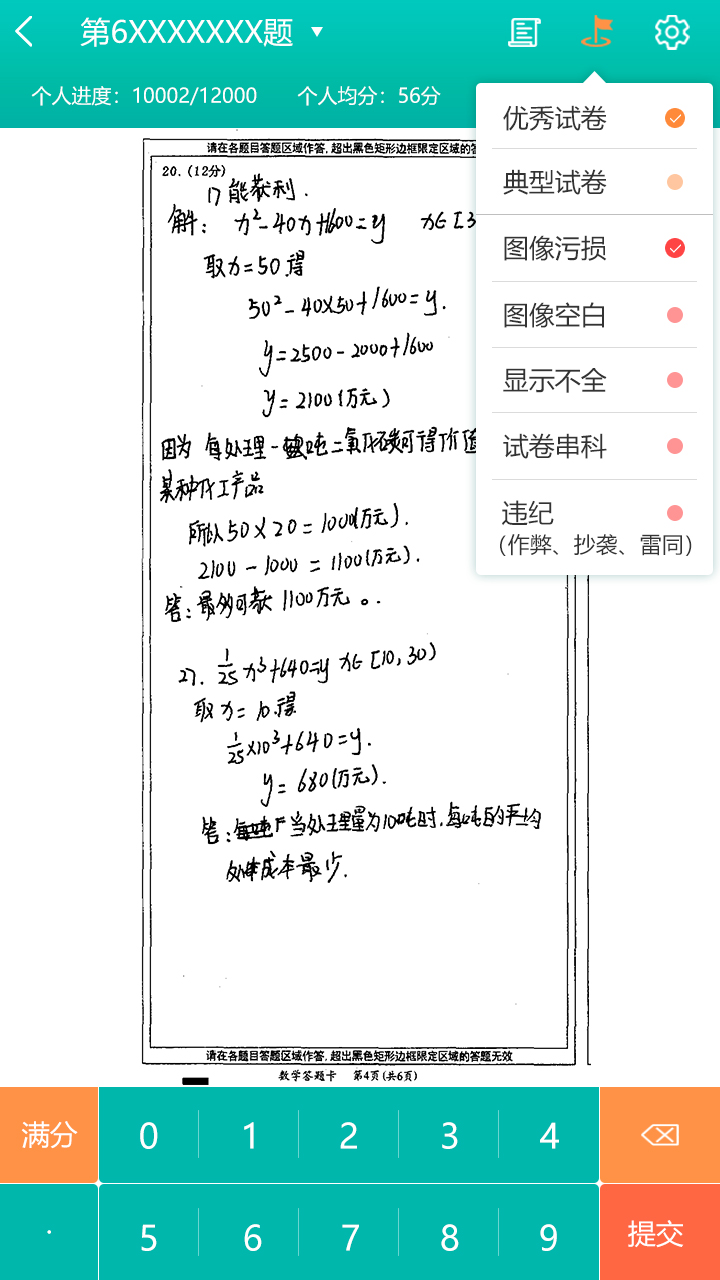 第6XXXXXXX题
个人进度：10002/12000 个人均分：56分
优秀试卷
典型试卷
图像污损
图像空白
显示不全
试卷串科
违纪
（作弊、抄袭、雷同）
请在各题目答题区域作答，超出黑色矩形边框限定区域的答
20.（12分）
1) 能获利.
解： x²-40x+1600=y x∈[3
取x=50.得
50²-40×50+1600=y.
y=2500-2000+1600
y=2100(万元)
因为 每处理一吨二氧化碳可得价值
某种化工产品
所以50×20=1000(万元).
2100-1000=1100(万元).
答：最多可获1100万元。.
27. 1/25 x³+640=y x∈[10,30)
取x=10.得
1/25×10³+640=y.
y=680(万元).
答： 当处理量为100吨时,每吨的平均
处理成本最少.
请在各题目答题区域作答，超出黑色矩形边框限定区域的答题无效
数学答题卡 第4页(共6页)
满分 0 1 2 3 4
· 5 6 7 8 9 提交